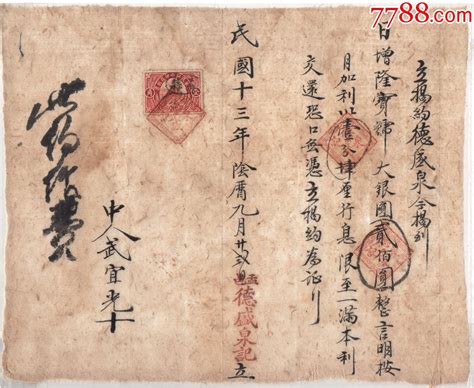 立揭約德盛泉今揭到
日增隆寶號大銀圓貳佰圓整言明按
月加利以壹分肆厘行息限至一滿本利
交還恐口無憑立揭約為証
民國十三年陰曆九月廿
德盛泉記立
中人武宜光十
此約作廢
7788.com